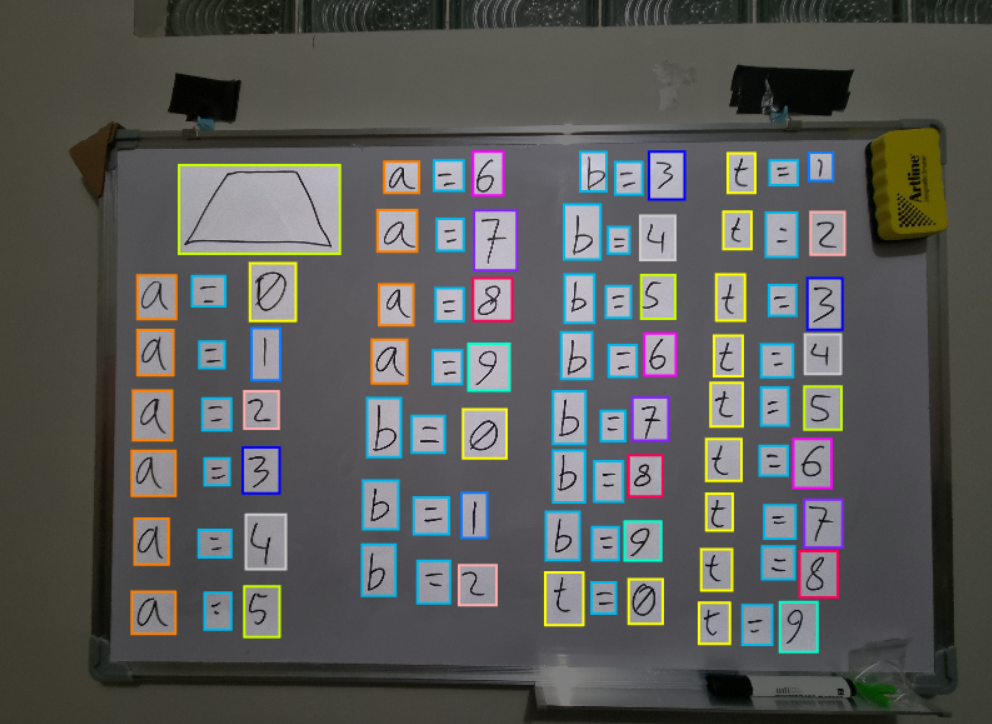 a = 0
a = 1
a = 2
a = 3
a = 4
a = 5
a = 6
a = 7
a = 8
a = 9
b = 0
b = 1
b = 2
b = 3
b = 4
b = 5
b = 6
b = 7
b = 8
b = 9
t = 0
t = 1
t = 2
t = 3
t = 4
t = 5
t = 6
t = 7
t = 8
t = 9
Artline